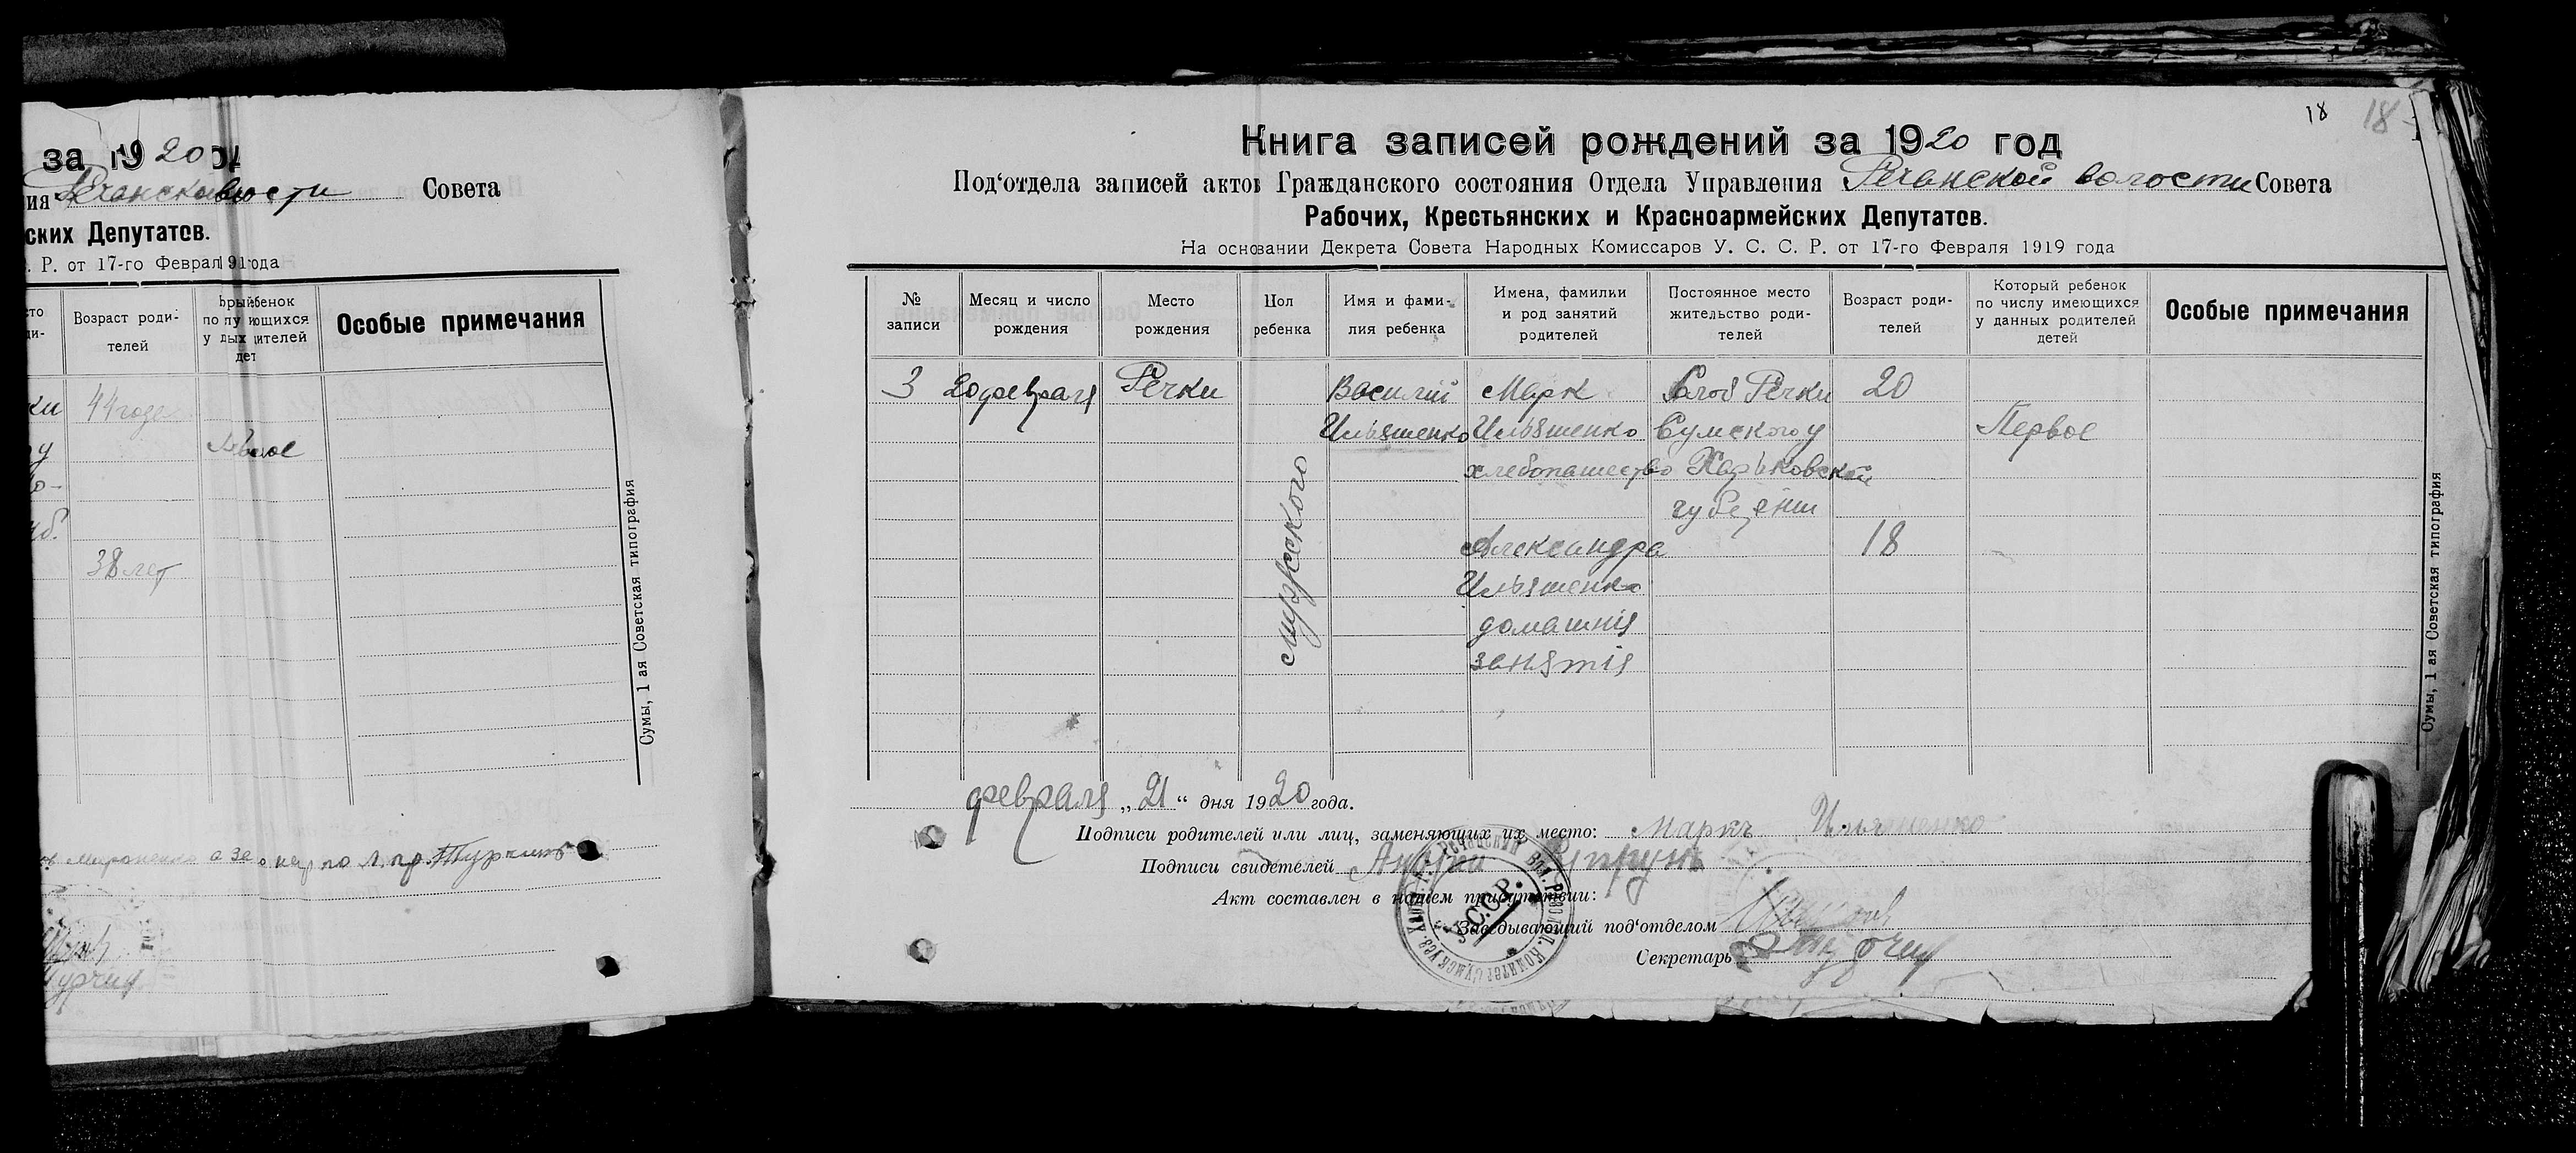 за 1920
Речанской волости Совета
ских Депутатов.
. Р. от 17-го Феврал 191 года
Возраст роди-
телей
ребенок
по ющихся
у дителей
дет
Особые примечания
ки 44 года
у
38 лет
Сумы, 1 ая Советская типография
18 18
Книга записей рождений за 1920 год
Под‘отдела записей актов Гражданского состояния Отдела Управления Речанской волости Совета
Рабочих, Крестьянских и Красноармейских Депутатов.
На основании Декрета Совета Народных Комиссаров У. С. С. Р. от 17-го Февраля 1919 года
№
записи
Месяц и число
рождения
Место
рождения
Пол
ребенка
Имя и фами-
лия ребенка
Имена, фамилии
и род занятий
родителей
Постоянное место
жительство роди-
телей
Возраст роди-
телей
Который ребенок
по числу имеющихся
у данных родителей
детей
Особые примечания
3 20 февраля Речки Василий Марк Слоб Речки 20
Ильяшенко Ильяшенко Сумского у Первое
хлебопашество Харьковской
губернии
мужского
Александра 18
Ильяшенко
домашнія
занятія
Сумы, 1 ая Советская типография
февраля „21“ дня 1920 года.
Подписи родителей или лиц, заменяющих их место: Маркъ Ильяшенко
Подписи свидетелей Андрей
Акт составлен в нашем присутствии:
Заведывающий под‘отделом
Секретарь
С.С.Р.